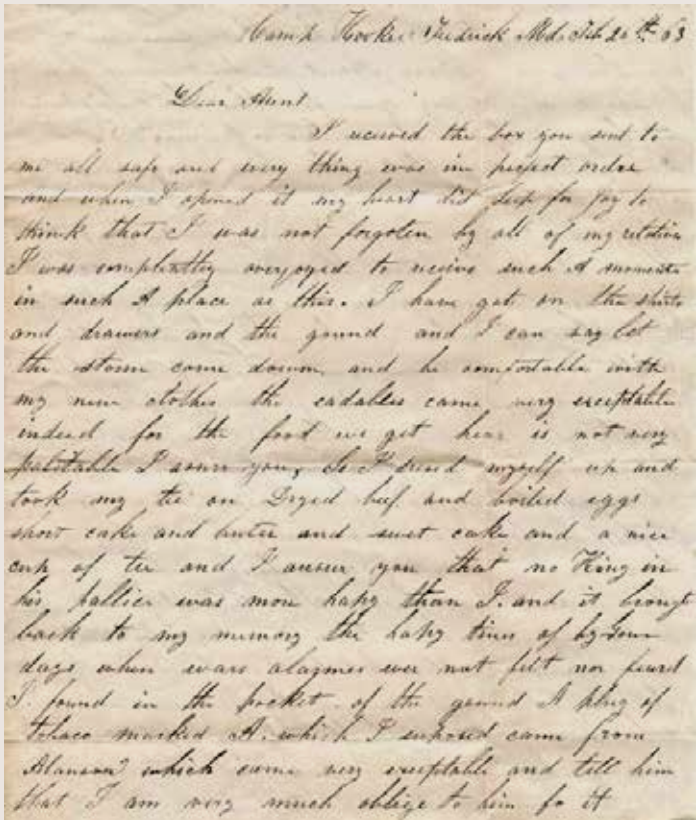 Camp Hooker Fredrick Md. Feb 20th 63
Dear Aunt
I recieved the box you sent to
me all safe and every thing was in perfect order
and when I opened it my heart did leep for joy to
think that I was not forgoten by all of my relation
I was compleattly overjoyed to recive such A
in such A place as this. I have got on the shirts
and drawers and the and I can say let
the storm come down and be comfortable with
my new clothes the eadables came very exceptable
indeed for the food we get hear is not very
I you, So I myself up and
took my tee on Dryed beef and boiled eggs
short cake and buter and sweet cake and a nice
cup of tee and I asure you that no King in
his pallice was more hapy than I. and it brough
back to my memory the hapy times of by gone
days when wars alarmes wer not felt nor feard
I found in the pocket of the A plug of
tobaco marked A. which I suposed came from
Alanson which came very exceptable and tell him
that I am very much oblige to him fo it